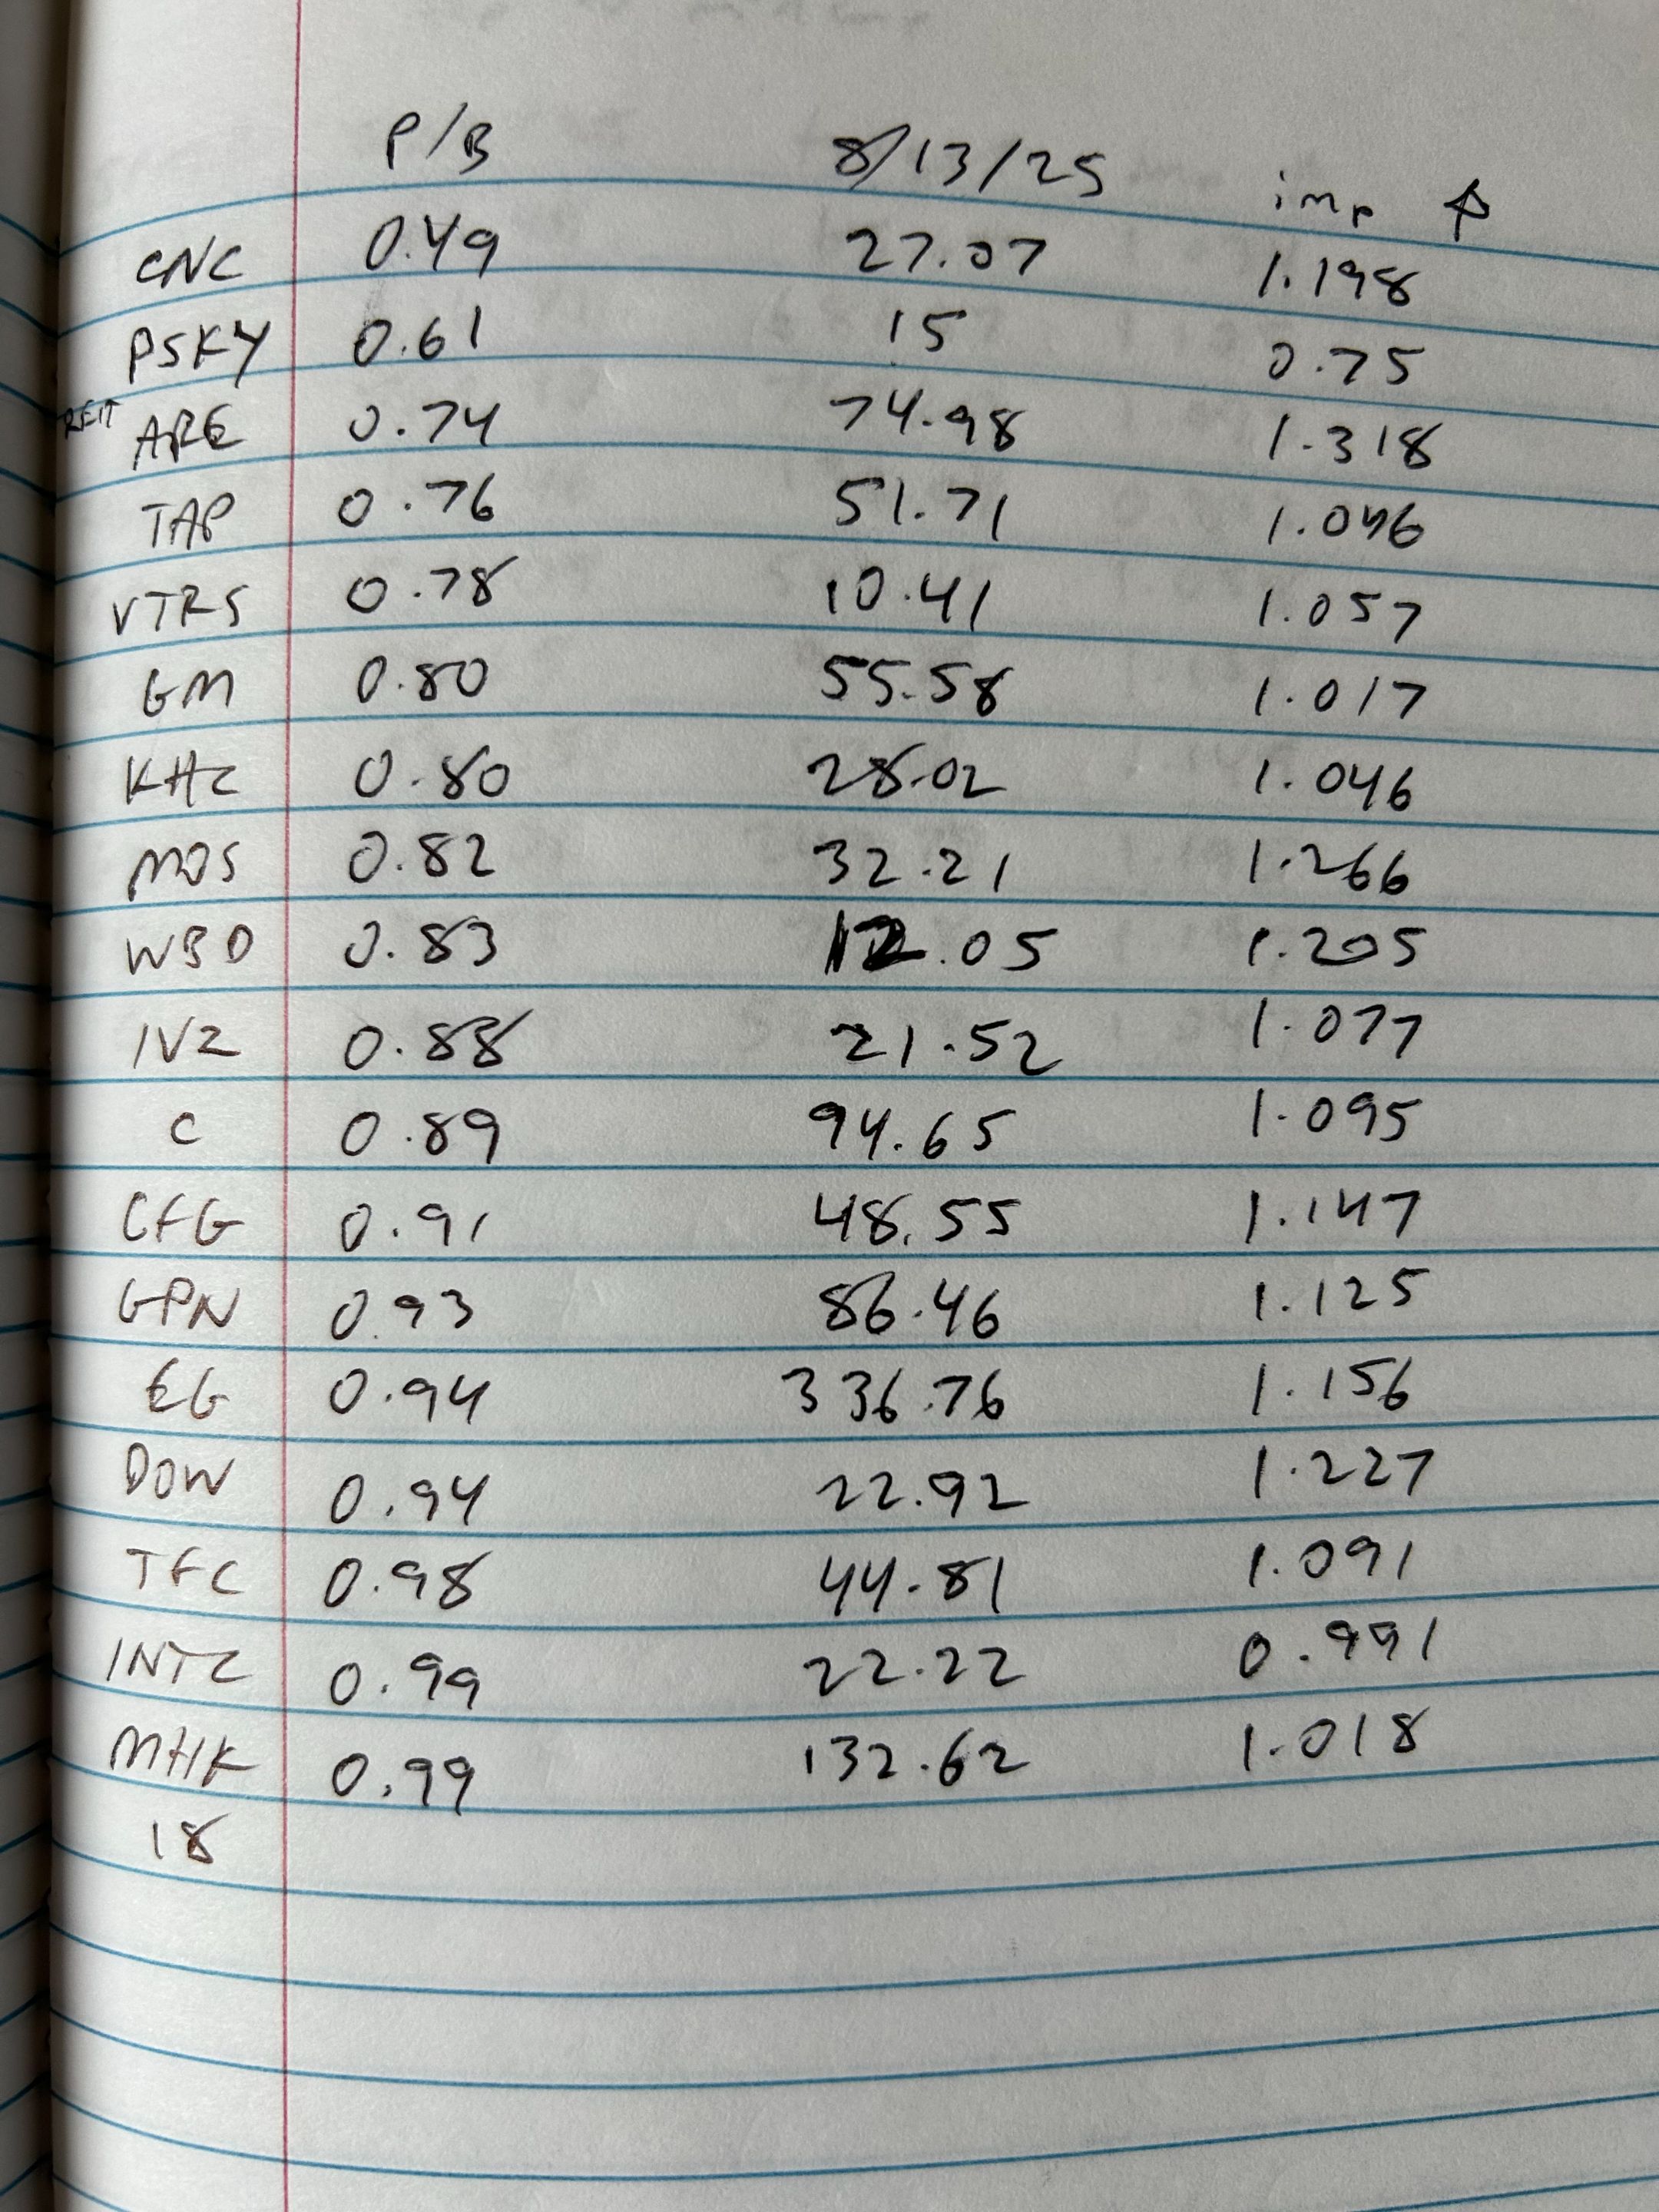 P/B 8/13/25 imp ↑
CNC 0.49 27.07 1.198
PSKY 0.61 15 0.75
REIT ARE 0.74 74.98 1.318
TAP 0.76 51.71 1.046
VTRS 0.78 10.41 1.057
GM 0.80 55.58 1.017
KHC 0.80 28.02 1.046
MOS 0.82 32.21 1.266
WBD 0.83 12.05 1.205
IVZ 0.88 21.52 1.077
C 0.89 94.65 1.095
CFG 0.91 48.55 1.147
GPN 0.93 86.46 1.125
EG 0.94 336.76 1.156
DOW 0.94 22.92 1.227
TFC 0.98 44.81 1.091
INTC 0.99 22.22 0.991
MHK 0.99 132.62 1.018
18